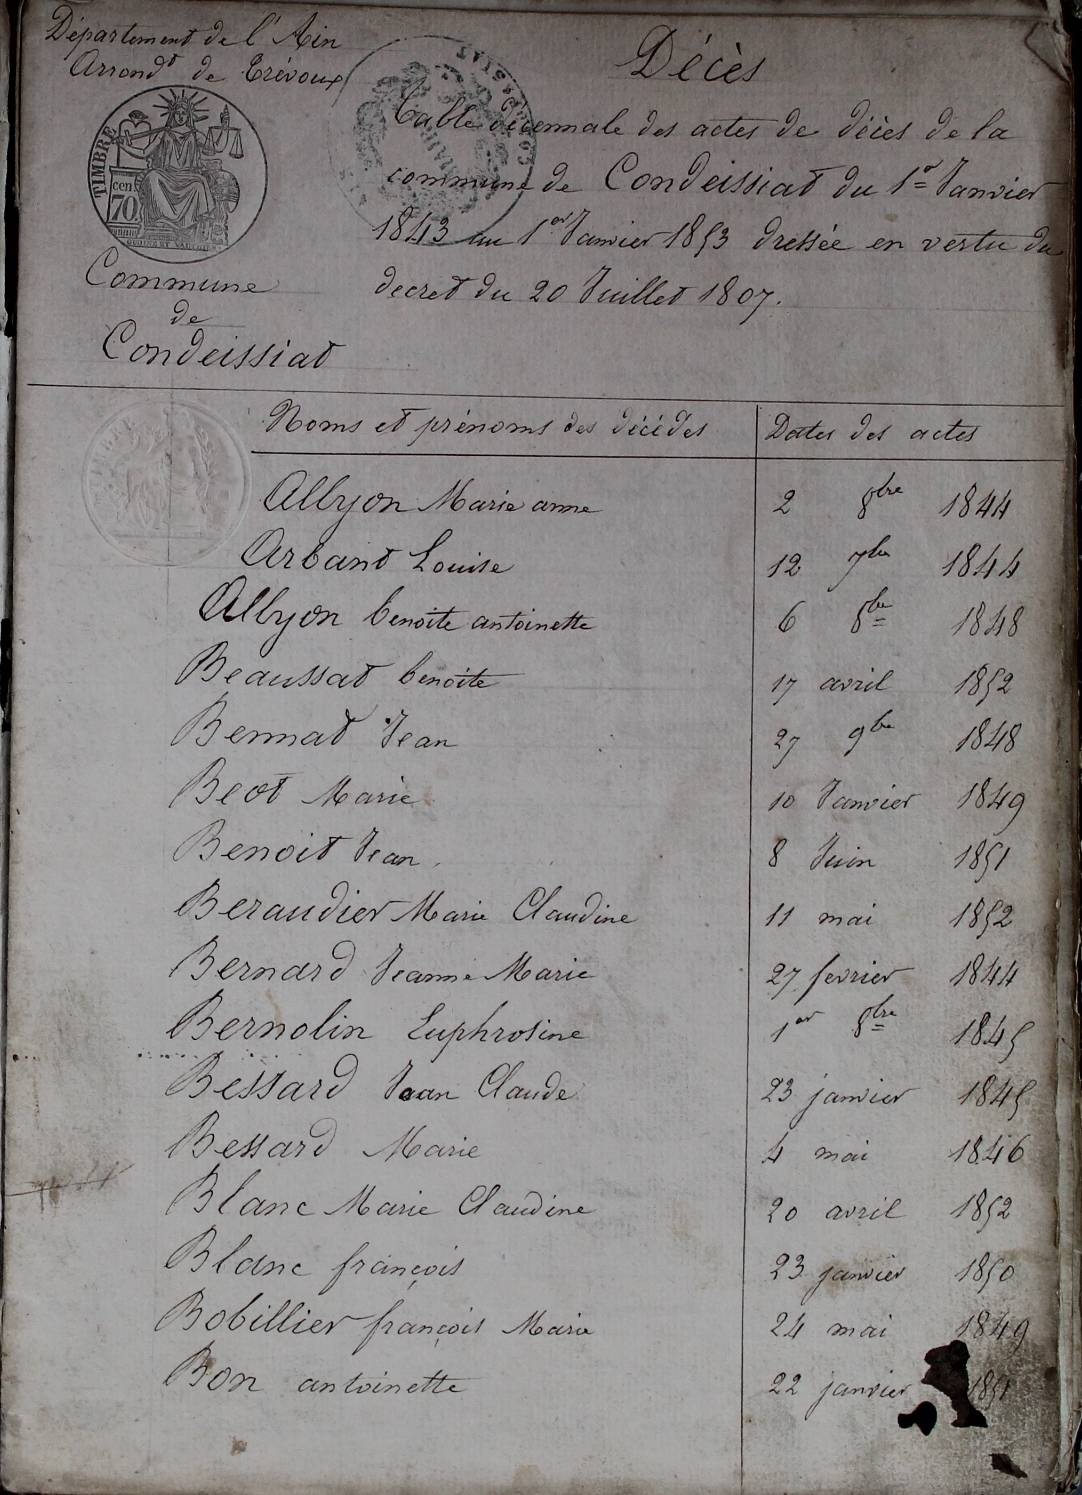 Département de l'Ain
Arrond^t de Trévoux
TIMBRE
cen
70
Commune
de
Condeissiat
Décès
Table décennale des actes de décès de la
commune de Condeissiat du 1^r Janvier
1843 au 1^er Janvier 1853 dressée en vertu du
decret du 20 Juillet 1807.
Noms et prénoms des décédés Dates des actes
Albyon Marie anne 2 8^bre 1844
Arbant Louise 12 7^bre 1844
Albyon benoite antoinette 6 8^bre 1848
Beaussat benoite 17 avril 1852
Bennat Jean 27 9^bre 1848
Beot Marie 10 Janvier 1849
Benoit Jean 8 Juin 1851
Beraudier Marie Claudine 11 mai 1852
Bernard Jeanne Marie 27 fevrier 1844
Bernolin Euphrosine 1^er 8^bre 1845
Bessard Jean Claude 23 janvier 1845
Bessard Marie 4 mai 1846
Blanc Marie Claudine 20 avril 1852
Blanc françois 23 janvier 1850
Bobillier françois Marie 24 mai 1849
Bon antoinette 22 janvier 1851